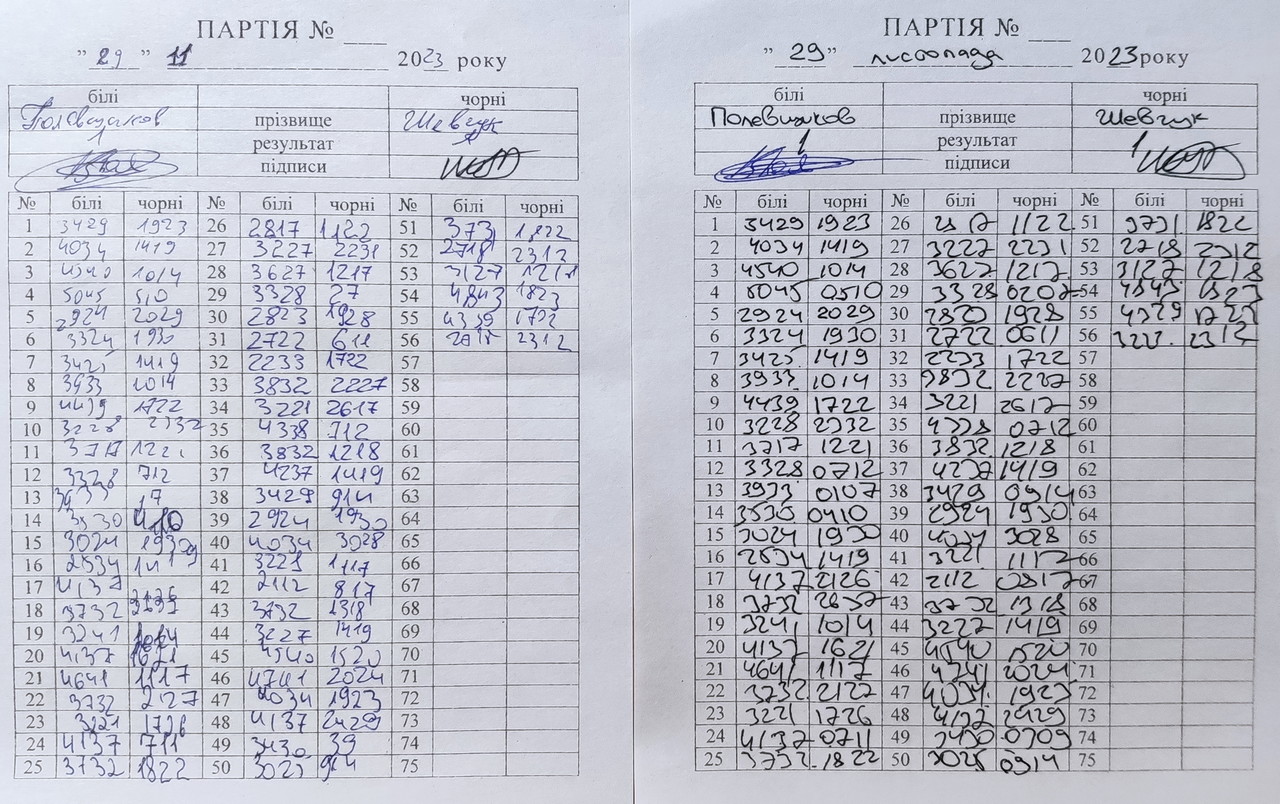 ПАРТІЯ № ___
" 29 " 11 2023 року
білі чорні
Полевчаков прізвище Шевчук
1 результат 1
підписи
№ білі чорні № білі чорні № білі чорні
1 3429 1923 26 2817 1122 51 3731 1822
2 4034 1419 27 3227 2231 52 2718 2312
3 4540 1014 28 3627 1217 53 3127 1218
4 5045 510 29 3328 27 54 4843 1823
5 2924 2029 30 2823 1928 55 4339 1722
6 3324 1930 31 2722 611 56 2312
7 3425 1419 32 2233 1722 57
8 3933 1014 33 3832 2227 58
9 4439 1722 34 3221 2617 59
10 3228 2332 35 4338 712 60
11 3717 1221 36 3832 1218 61
12 3328 712 37 4237 1419 62
13 3933 17 38 3429 914 63
14 3530 410 39 2924 1930 64
15 3024 1930 40 4034 3028 65
16 2534 1419 41 3221 1117 66
17 4137 2126 42 2112 817 67
18 3732 2637 43 3732 1318 68
19 3241 1014 44 3227 1419 69
20 4137 1621 45 4540 1520 70
21 4641 1117 46 4741 2024 71
22 3732 2127 47 4034 1923 72
23 3221 1726 48 4137 2429 73
24 4137 711 49 3430 39 74
25 3732 1822 50 3025 914 75
ПАРТІЯ № ___
" 29 " листопада 2023 року
білі чорні
Полевчаков прізвище Шевчук
1 результат 1
підписи
№ білі чорні № білі чорні № білі чорні
1 3429 1923 26 2817 1122 51 3731 1822
2 4034 1419 27 3227 2231 52 2718 2312
3 4540 1014 28 3627 1217 53 3127 1218
4 5045 0510 29 3328 0207 54 4843 1823
5 2924 2029 30 2823 1928 55 4329 1722
6 3324 1930 31 2722 0611 56 3227 2312
7 3425 1419 32 2233 1722 57
8 3933 1014 33 3832 2227 58
9 4439 1722 34 3221 2617 59
10 3228 2332 35 4338 0712 60
11 3717 1221 36 3832 1218 61
12 3328 0712 37 4237 1419 62
13 3933 0107 38 3429 0914 63
14 3530 0410 39 2924 1930 64
15 3024 1930 40 4034 3028 65
16 2534 1419 41 3221 1117 66
17 4137 2126 42 2112 0817 67
18 3732 2637 43 3732 1318 68
19 3241 1014 44 3227 1419 69
20 4137 1621 45 4540 1520 70
21 4641 1117 46 4741 2024 71
22 3732 2127 47 4034 1923 72
23 3221 1726 48 4137 2429 73
24 4137 0711 49 3430 0309 74
25 3732 1822 50 3025 0914 75